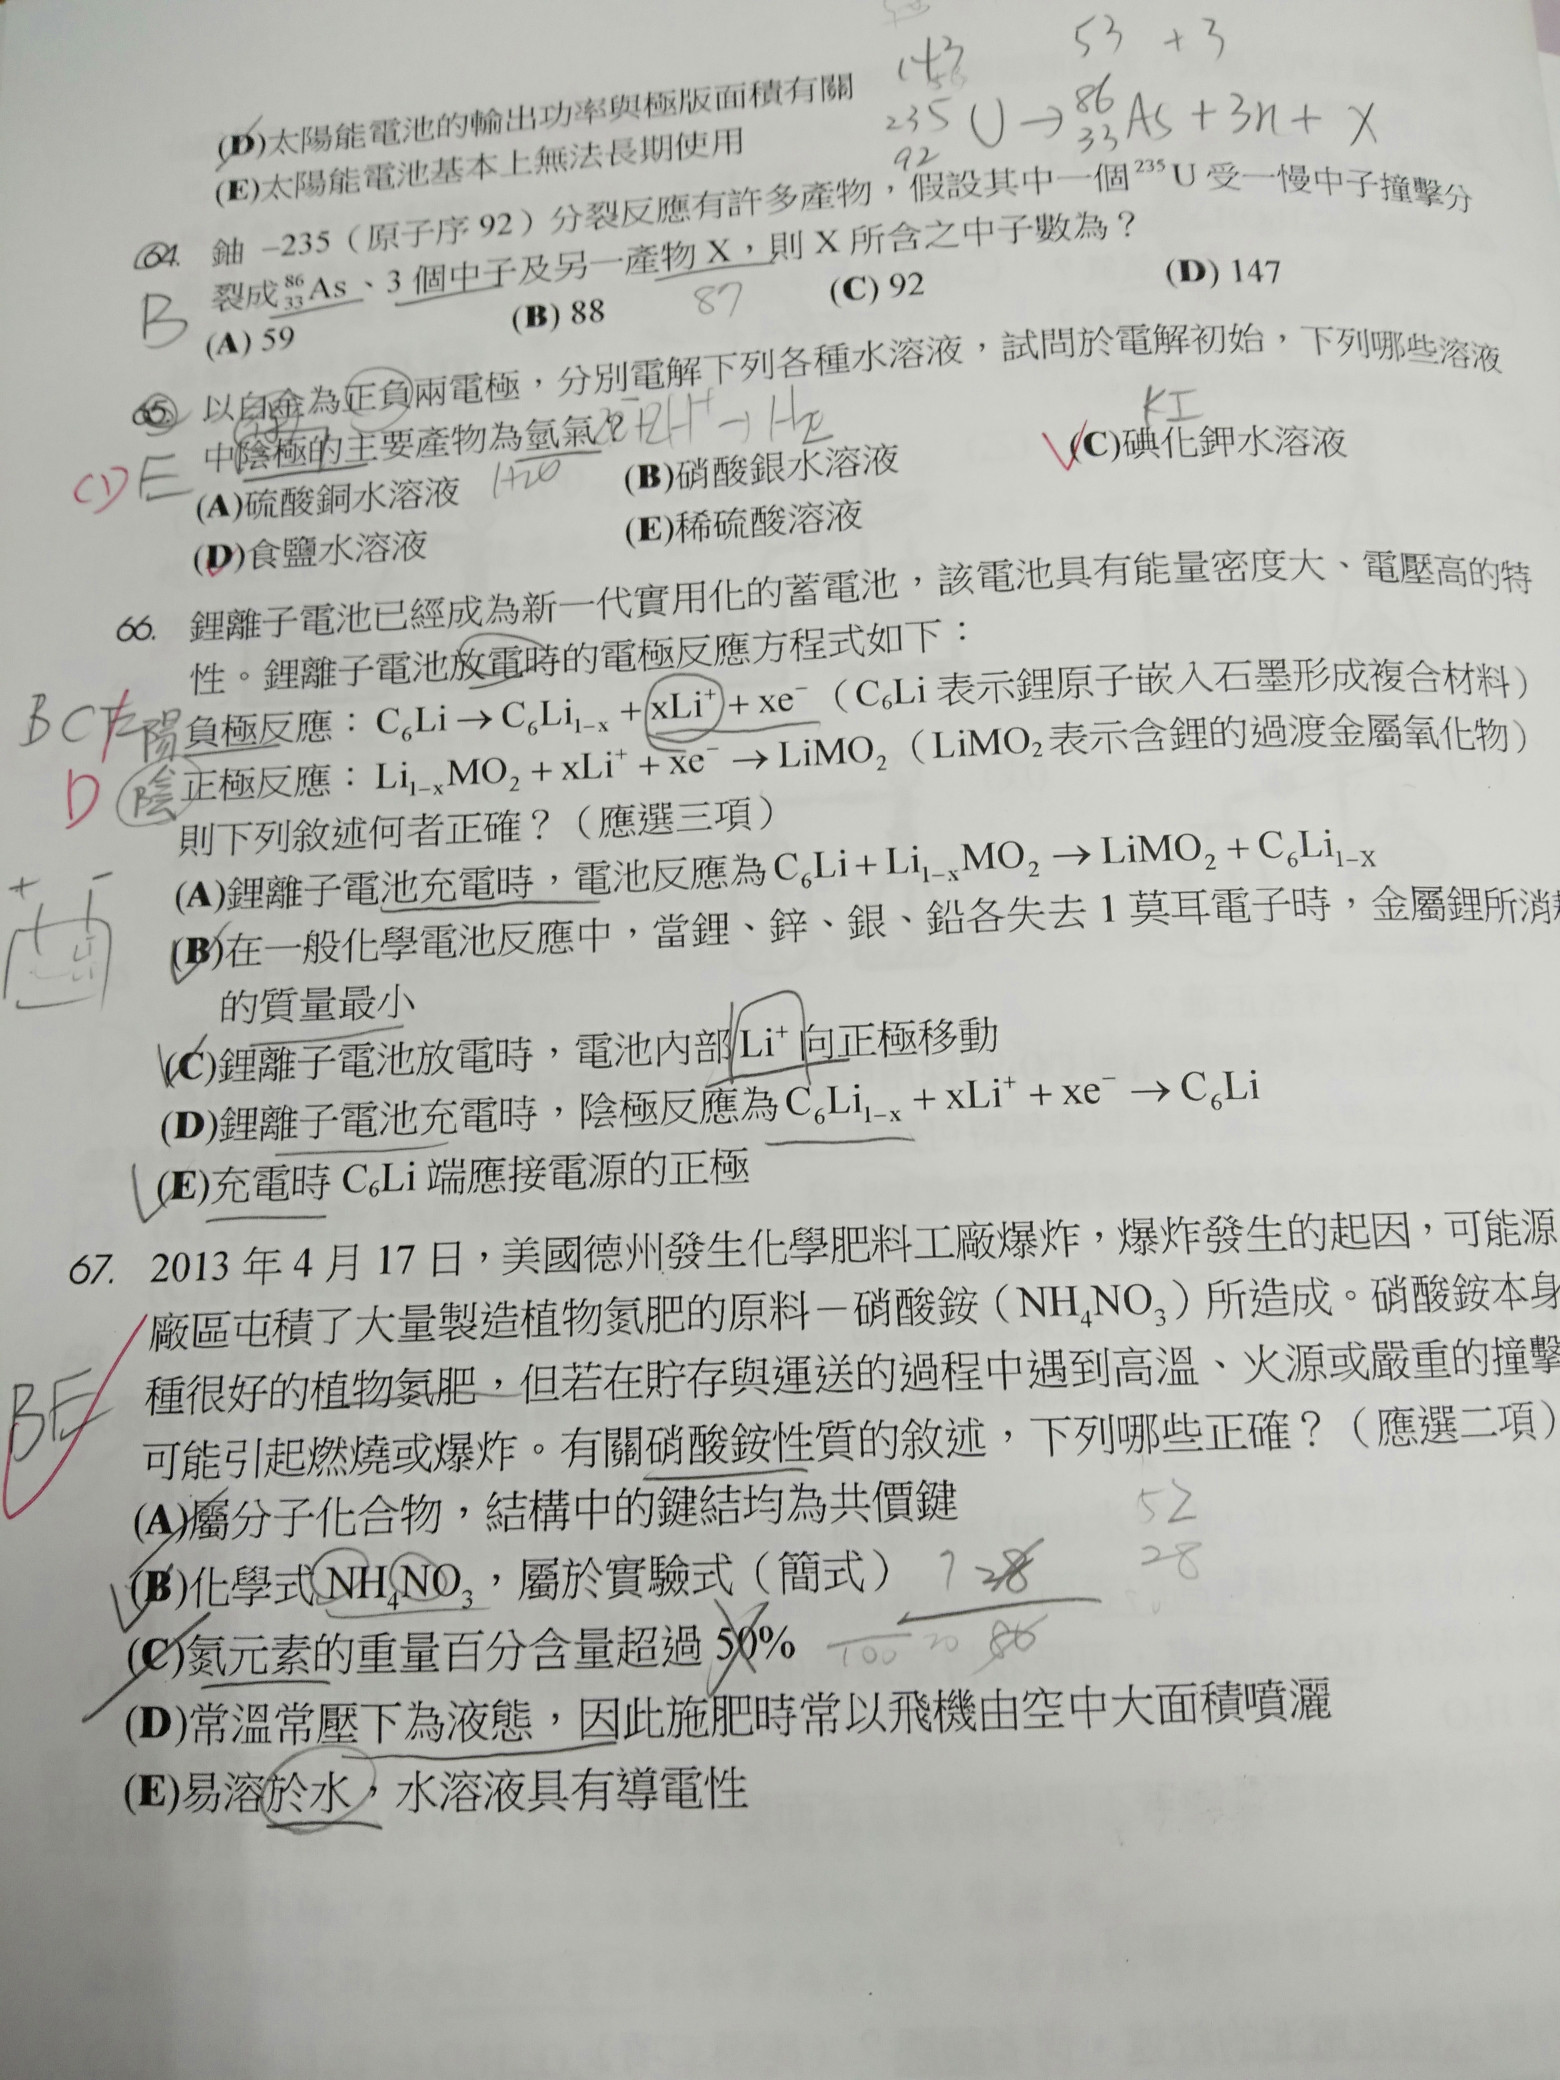 143 53 + 3
(D)太陽能電池的輸出功率與極版面積有關
235 92 U → 86 33 As + 3n + X
(E)太陽能電池基本上無法長期使用
64. 鈾 –235（原子序 92）分裂反應有許多產物，假設其中一個 ²³⁵U 受一慢中子撞擊分
B 裂成 ⁸⁶₃₃As、3 個中子及另一產物 X，則 X 所含之中子數為？
(A) 59 (B) 88 87 (C) 92 (D) 147
65. 以白金為正負兩電極，分別電解下列各種水溶液，試問於電解初始，下列哪些溶液
中陰極的主要產物為氫氣？ KI
CD E (A)硫酸銅水溶液 H2O (B)硝酸銀水溶液 (C)碘化鉀水溶液
(D)食鹽水溶液 (E)稀硫酸溶液
66. 鋰離子電池已經成為新一代實用化的蓄電池，該電池具有能量密度大、電壓高的特
性。鋰離子電池放電時的電極反應方程式如下：
BCE 陽 負極反應：C₆Li → C₆Li₁₋ₓ + xLi⁺ + xe⁻（C₆Li 表示鋰原子嵌入石墨形成複合材料）
D 陰 正極反應：Li₁₋ₓMO₂ + xLi⁺ + xe⁻ → LiMO₂（LiMO₂ 表示含鋰的過渡金屬氧化物）
則下列敘述何者正確？（應選三項）
(A)鋰離子電池充電時，電池反應為 C₆Li + Li₁₋ₓMO₂ → LiMO₂ + C₆Li₁₋X
+ −
(B)在一般化學電池反應中，當鋰、鋅、銀、鉛各失去 1 莫耳電子時，金屬鋰所消耗
的質量最小
(C)鋰離子電池放電時，電池內部 Li⁺ 向正極移動
(D)鋰離子電池充電時，陰極反應為 C₆Li₁₋ₓ + xLi⁺ + xe⁻ → C₆Li
(E)充電時 C₆Li 端應接電源的正極
67. 2013 年 4 月 17 日，美國德州發生化學肥料工廠爆炸，爆炸發生的起因，可能源
廠區屯積了大量製造植物氮肥的原料－硝酸銨（NH₄NO₃）所造成。硝酸銨本身
BE 種很好的植物氮肥，但若在貯存與運送的過程中遇到高溫、火源或嚴重的撞擊
可能引起燃燒或爆炸。有關硝酸銨性質的敘述，下列哪些正確？（應選二項）
(A)屬分子化合物，結構中的鍵結均為共價鍵 52
(B)化學式 NH₄NO₃，屬於實驗式（簡式） 28
(C)氮元素的重量百分含量超過 50% 100
(D)常溫常壓下為液態，因此施肥時常以飛機由空中大面積噴灑
(E)易溶於水，水溶液具有導電性